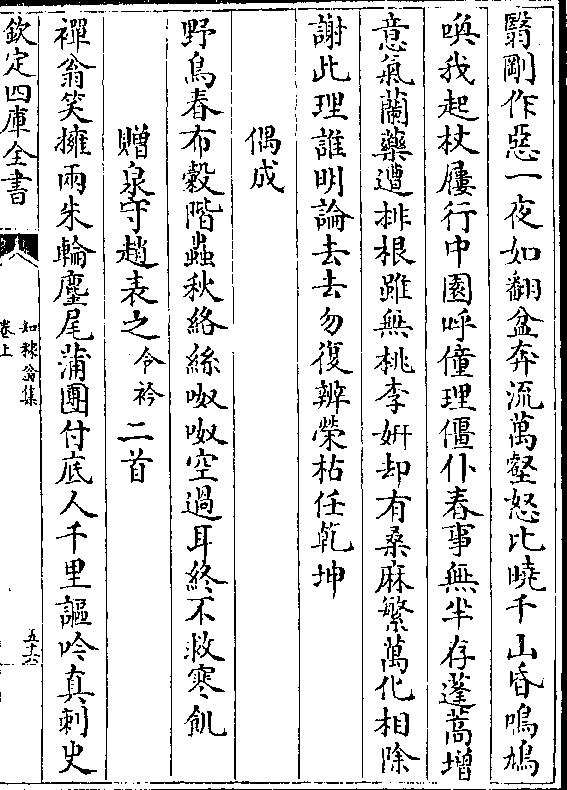 翳剛作惡一夜如翻盆奔流萬壑怒比曉千山昏鳴鳩
喚我起杖屨行中園呼僮理僵仆春事無半存蓬蒿增
意氣蘭藥遭排根雖無桃李妍却有桑麻繁萬化相除
謝此理誰明論去去勿復辨榮枯任乾坤
偶成
野鳥春布穀階蟲秋絡絲呶呶空過耳終不救寒飢
贈泉守趙表之令衿二首
禪翁笑擁兩朱輪麈尾蒲團付底人千里謳吟真刺史
欽定四庫全書
如稊翁集
卷上